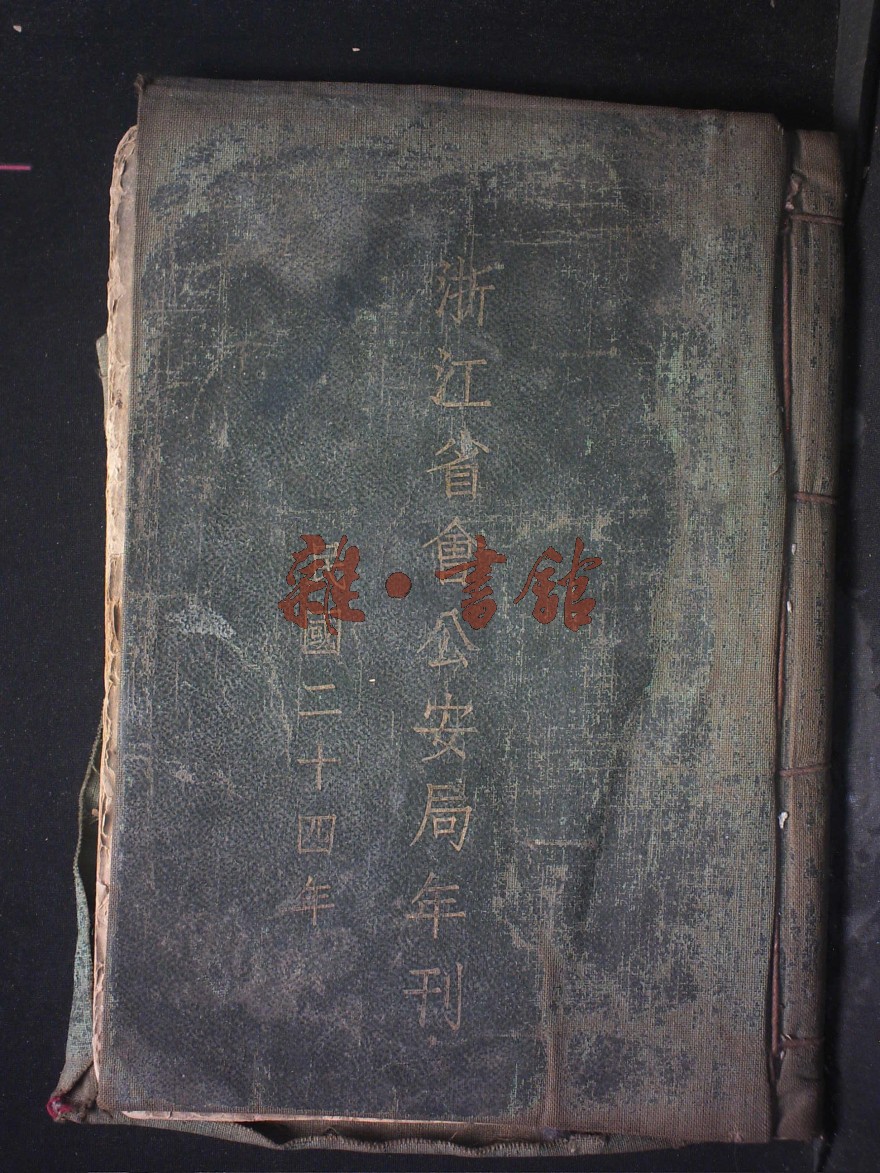 浙江省會公安局年刊
民國二十四年
雜·書館